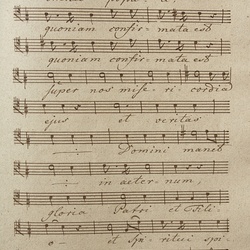 quoniam confir- mata est
quoniam confir- mata est
super nos mise- ri- cordia
ejus et veritas
Domini manet
in aeter- num,
gloria Patri et Fili-
o et Spi- ritui